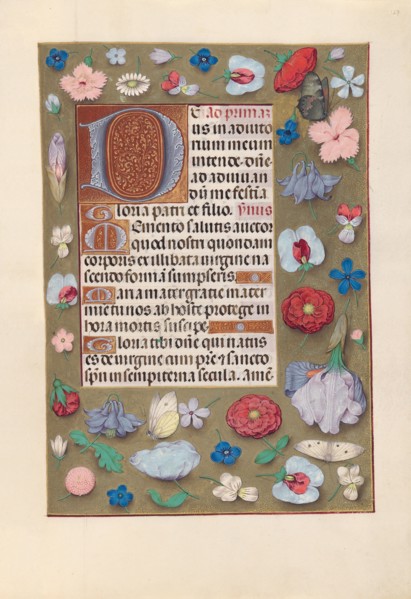 DE ad primaz
us in adiuto
rium meum
intende. dñe
ad adiuuan
dũ me festĩa
Gloria patri et filio. ỹmus
Memento salutis auctor
quod nostri quondam
corporis ex illibata uirgine na
scendo formã sumpseris
Maria mater gratie mater
mie tu nos ab hoste protege in
hora mortis suscipe
Gloria tibi dñe qui natus
es de uirgine cum pr̃e et sancto
sp̃u in sempiterna secula. Amẽ